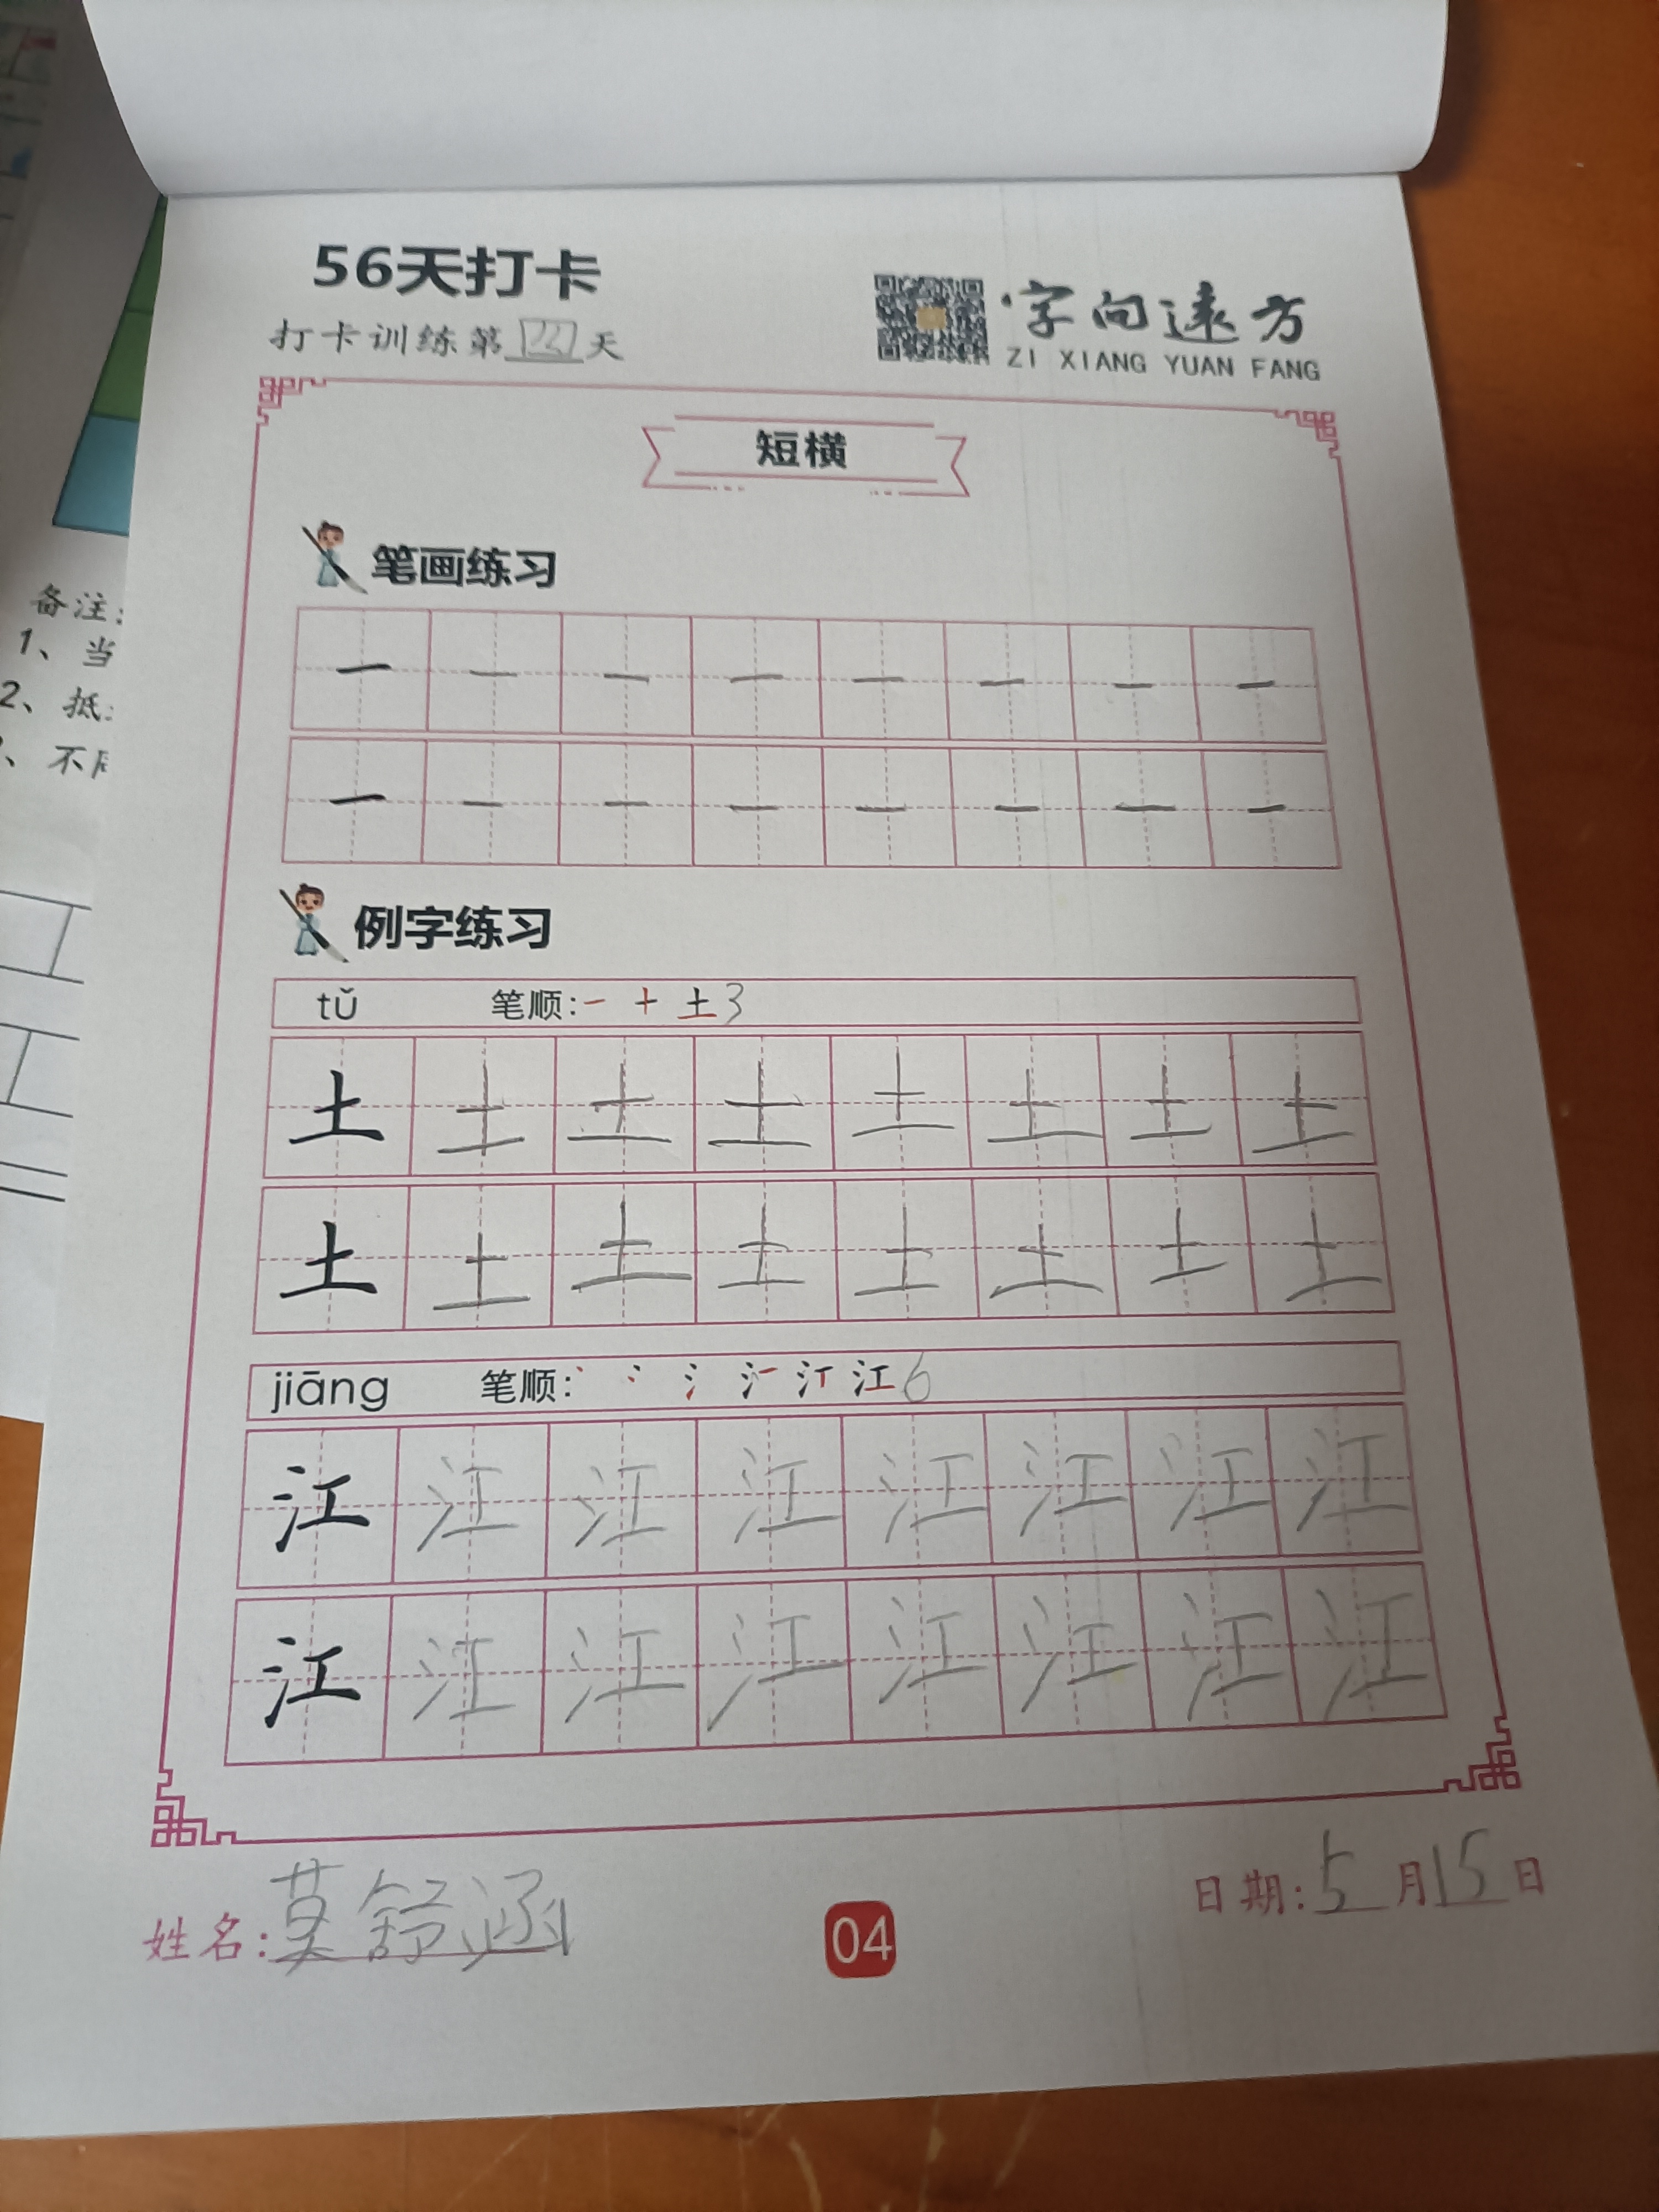 56天打卡
打卡训练第 天
字向远方
ZI XIANG YUAN FANG
短横
笔画练习
一 一 一 一 一 一 一 一
一 一 一 一 一 一 一 一
例字练习
tǔ 笔顺: 一 十 土 3
土 土 土 土 土 土 土 土
土 土 土 土 土 土 土 土
jiāng 笔顺: 丶 冫 氵 江 6
江 江 江 江 江 江 江 江
江 江 江 江 江 江 江 江
姓名: 莫舒涵
04
日期: 5月15日
备注:
1、当
2、抵
、不